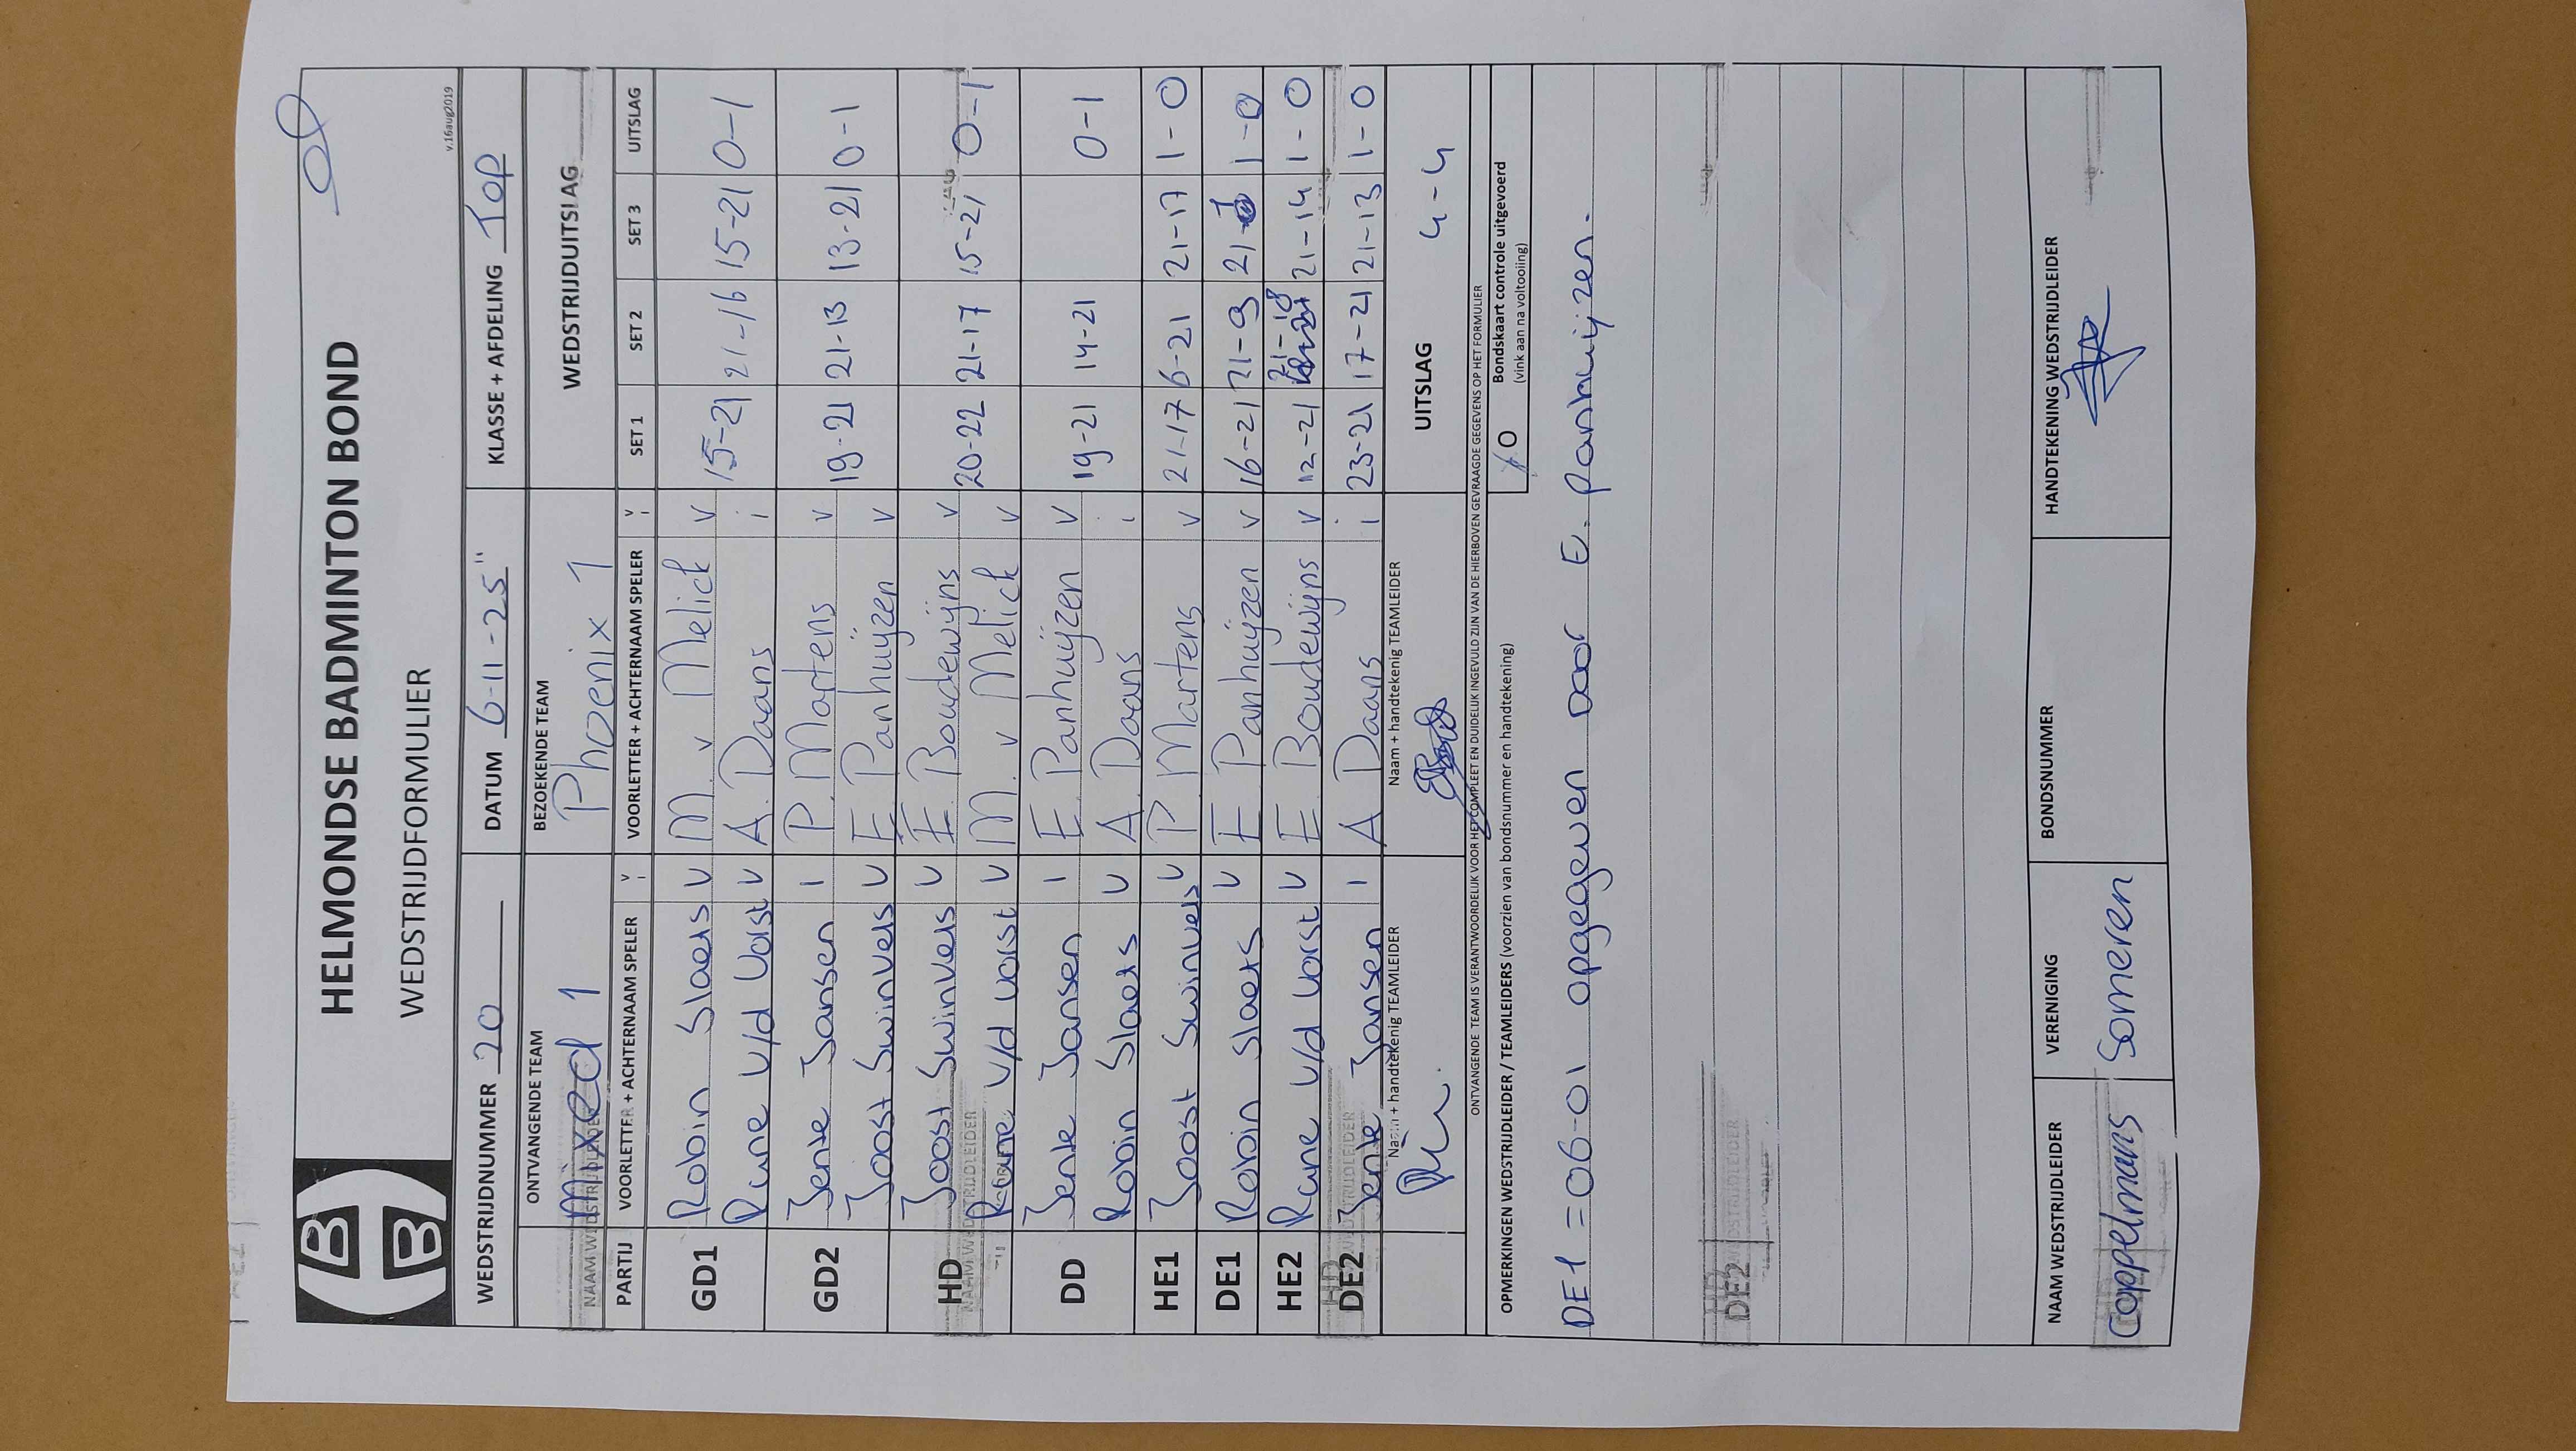 HELMONDSE BADMINTON BOND
WEDSTRIJDFORMULIER
v.16aug2019
WEDSTRIJDNUMMER 20 DATUM 6-11-25" KLASSE + AFDELING Top
ONTVANGENDE TEAM BEZOEKENDE TEAM WEDSTRIJDUITSLAG
Mixed 1 Phoenix 1
PARTIJ VOORLETTER + ACHTERNAAM SPELER V i VOORLETTER + ACHTERNAAM SPELER V i SET 1 SET 2 SET 3 UITSLAG
GD1 Robin Slaets V M. v Melick V 15-21 21-16 15-21 0-1
Rune v/d Vorst V A. Daans i
GD2 Jente Jansen I P. Martens V 19-21 21-13 13-21 0-1
Joost Swinkels V E Panhuijzen V
HD Joost Swinkels V E. Boudewijns V 20-22 21-17 15-21 0-1
Rune v/d Vorst V M. v Melick V
DD Jente Jansen I E. Panhuijzen V 19-21 14-21 0-1
Robin Slaets V A. Daans i
HE1 Joost Swinkels V P Martens V 21-17 6-21 21-17 1-0
DE1 Robin Slaets V E Panhuijzen V 16-21 21-9 21- 1-0
HE2 Rune v/d Vorst V E Boudewijns V 12-21 21-18 21-14 1-0
DE2 Jente Jansen I A Daans i 23-21 17-21 21-13 1-0
Naam + handtekenig TEAMLEIDER Naam + handtekenig TEAMLEIDER UITSLAG 4-4
ONTVANGENDE TEAM IS VERANTWOORDELIJK VOOR HET COMPLEET EN DUIDELIJK INGEVULD ZIJN VAN DE HIERBOVEN GEVRAAGDE GEGEVENS OP HET FORMULIER
OPMERKINGEN WEDSTRIJDLEIDER / TEAMLEIDERS (voorzien van bondsnummer en handtekening) O Bondskaart controle uitgevoerd
(vink aan na voltooiing)
DE1 = 06-01 opgegeven door E. Panhuijzen.
DE2
NAAM WEDSTRIJDLEIDER VERENIGING BONDSNUMMER HANDTEKENING WEDSTRIJDLEIDER
Coppelmans Someren